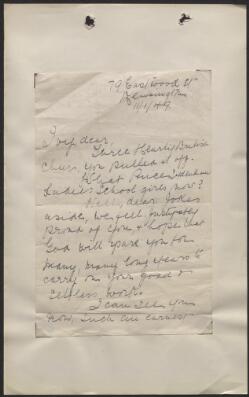 79 Eastwood St
Kensington
11/1/49
Ivy dear,
Three Hearty British
Cheers, you pulled it off.
What Price
Ladies School girls now?
Well, dear Jokes
aside, we feel
proud of you & hope that
God will spare you for
many, many long years to
carry on your good &
selfless work.
I can see you
now, such an earnest